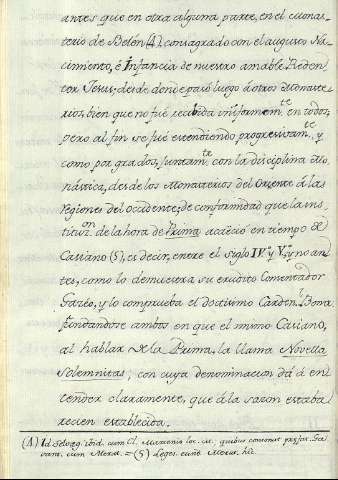 antes que en otra alguna parte, en el Monas-
terio de Belén (4), consagrado con el augusto Na-
cimiento, é Infancia de nuestro amable Reden-
tor Jesus; desde donde pasó luego á otros Monaste-
rios, bien que no fué recibida uniformem.te en todos,
pero al fin se fué estendiendo progresivam.te, y
como por grados, juntam.te con la disciplina Mo-
nástica, desde los Monasterios del Oriente á las
Regiones del Occidente; de conformidad que la ins-
tituz.on de la hora de Prima acaeció en tiempo de
Casiano (5), es decir, entre el siglo IV. y V.º, y no an-
tes, como lo demuestra su erudito Comentador
Gazéo, y lo comprueba el doctisimo Carden.l Bona
fundandose ambos en que el mismo Casiano,
al hablar de la Prima, la llama Novella
Solemnitas, con cuya denominacion dá á en-
tender claramente, que á la sazon estaba
recien establecida.
(4) Id. ibid. cum Cl. Martenio loc. cit. quibus consonat
cum Merat. = (5) Leges eund. Merat. hîc.